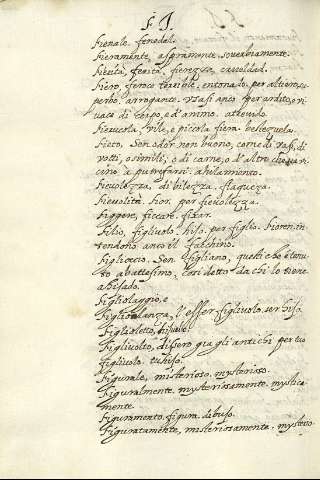 F I.
Fienale, fenedal.
Fieramente, aspramente, soverbiamente.
Fierità, ferità, fierezza, crueldad.
Fiero, feroce terribile, entonado, per altiero, su
perbo, arrogante. Usasi anco per ardito, e vi
vace di corpo, e d'animo. atrevido.
Fierucola, vile, e piccola fiera. bestezuela.
Fieto, Son odor non buono, come di rasi, di
rotti, o simili; o di carne, o d'altro che sia vi
cino a putrefarsi. ahilamiento.
Fievolezza, debilezza, flaqueza.
Fievolità, Fior. per fievolezza.
Figgere, ficcare, fixar.
Filio, figlivolo, hijo. per figlio. Fioren. in
tendono anco il facchino.
Figlioccio, Son figliano, questi che è tenu
to a battesimo, così detto da chi lo tiene.
ahijado.
Figliolaggio, e
Figliolanza, l'esser figlivolo, ser hijo.
Figlioletto, hijuelo.
Figlivolto, dissero gia gli antichi per tuo
figlivolo. tu hijo.
Figurale, misterioso, mysterioso.
Figuralmente, mysteriosamente, mystica
mente.
Figuramento, figura, dibuxo.
Figuratamente, misteriosamente, mysterio